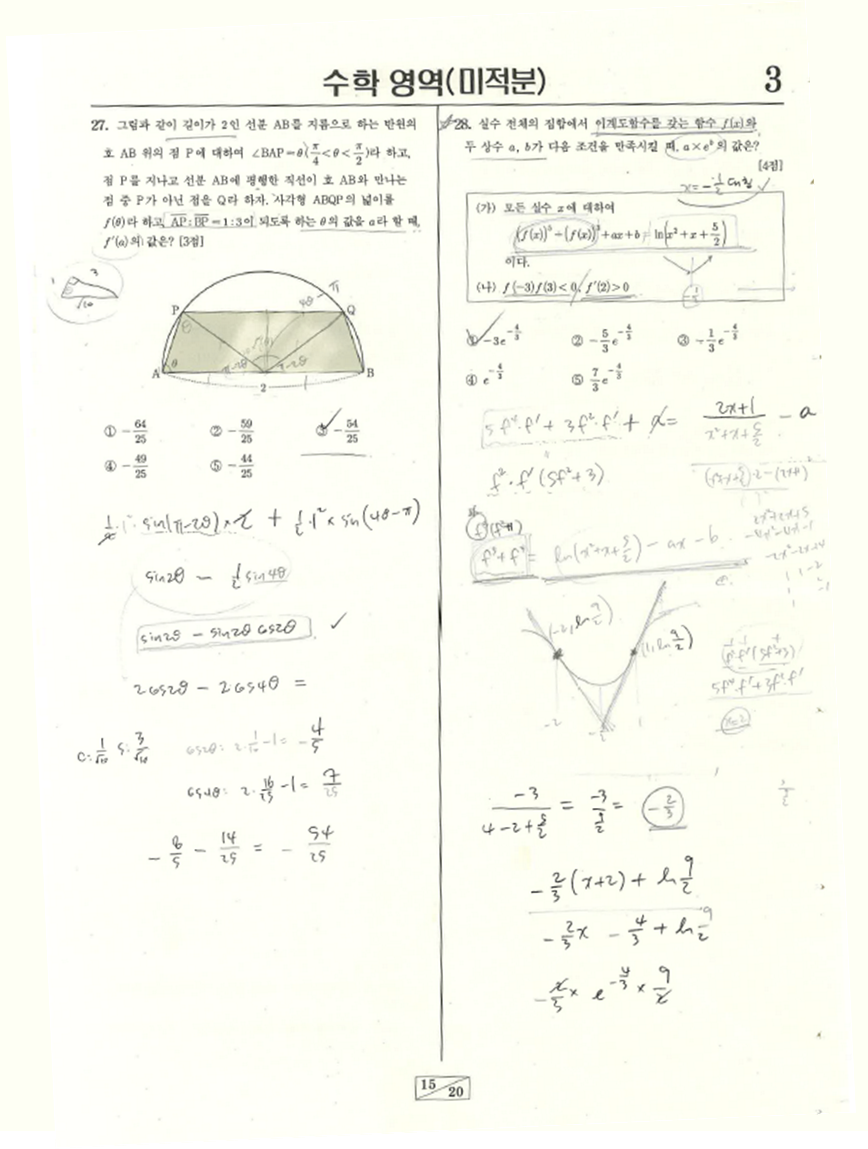 수학 영역(미적분)
3
27. 그림과 같이 길이가 2인 선분 AB를 지름으로 하는 반원의
호 AB 위의 점 P에 대하여 ∠BAP=θ(π/4<θ<π/2)라 하고,
점 P를 지나고 선분 AB에 평행한 직선이 호 AB와 만나는
점 중 P가 아닌 점을 Q라 하자. 사각형 ABQP의 넓이를
f(θ)라 하고, AP:BP=1:3이 되도록 하는 θ의 값을 α라 할 때,
f'(α)의 값은? [3점]
3
√10
P
Q
A
B
θ
4θ-π
π-2θ
π-2θ
2
① -64/25
② -59/25
③ -54/25
④ -49/25
⑤ -44/25
sin(π-2θ)×2 + 1/2·1²×sin(4θ-π)
sin2θ - 1/2 sin4θ
sin2θ - sin2θ cos2θ
2cos2θ - 2cos4θ =
c: 1/√10 s: 3/√10
cos2θ: 2·1/10-1= -4/5
cos4θ: 2·16/25-1= 7/25
-8/5 - 14/25 = -54/25
28. 실수 전체의 집합에서 이계도함수를 갖는 함수 f(x)와
두 상수 a, b가 다음 조건을 만족시킬 때, a×e^b의 값은?
[4점]
x=-1/2 대칭
(가) 모든 실수 x에 대하여
(f(x))^5+(f(x))^3+ax+b=ln(x²+x+5/2)
이다.
(나) f(-3)f(3)<0, f'(2)>0
-1/2
① -3e^(-4/3)
② -5/3e^(-4/3)
③ -1/3e^(-4/3)
④ e^(-4/3)
⑤ 7/3e^(-4/3)
5f⁴·f' + 3f²·f' + a = (2x+1)/(x²+x+5/2) - a
f²·f'(5f²+3)
f⁵+f³ = ln(x²+x+5/2) - ax - b
(1, ln 9/2)
-2
-1/2
1
5f⁴·f'+3f²·f'
x=2
-3/(4-2+5/2) = -3/(9/2) = -2/3
-2/3(x+2) + ln 9/2
-2/3x - 4/3 + ln 9/2
-2/3 × e^(-4/3) × 9/2
15/20